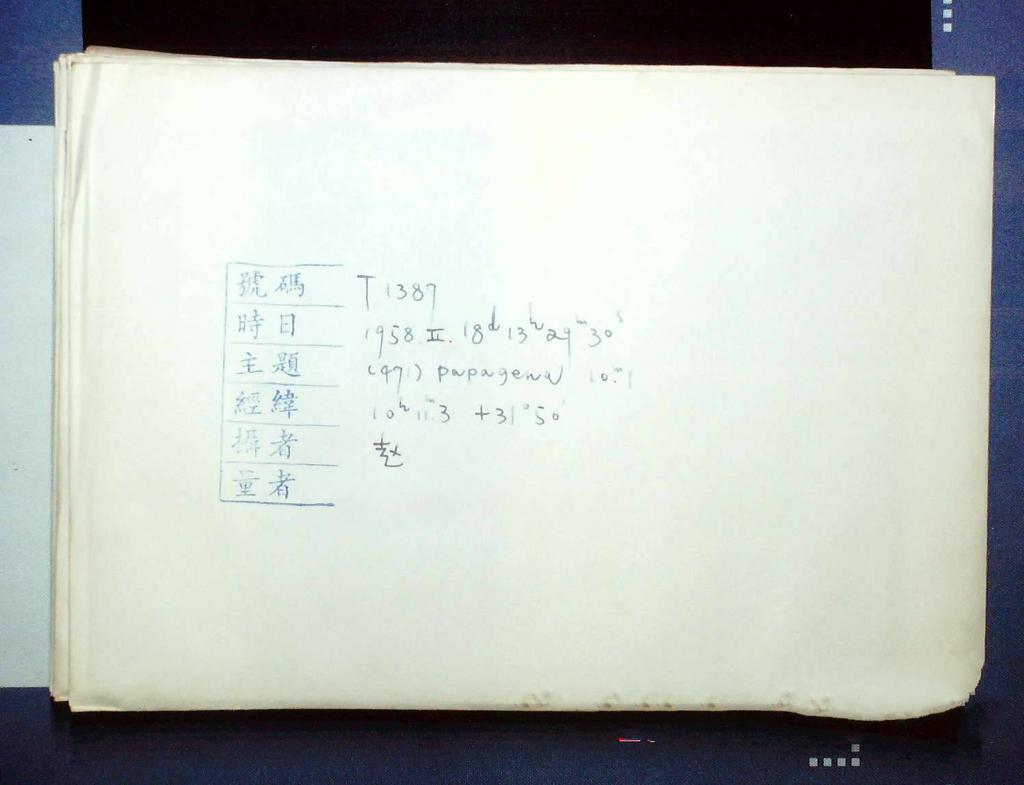 號碼 T 1387
時日 1958. II. 18ᵈ 13ʰ 29ᵐ 30ˢ
主題 (471) papagena 10.ᵐ1
經緯 10ʰ 11.ᵐ3 +31°50'
攝者 赵
量者